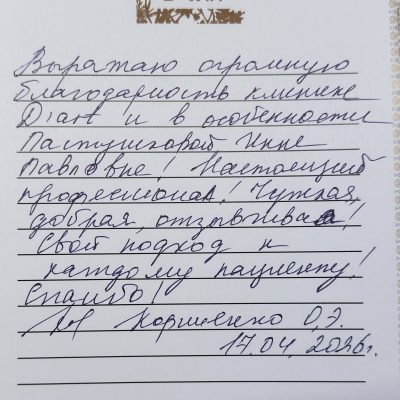 Выражаю огромную
благодарность клинике
D'art и в особенности
Пастушковой Инне
Павловне! Настоящий
профессионал! Чуткая,
добрая, отзывчивая!
Свой подход к
каждому пациенту!
Спасибо!
Корниенко О.Э.
17.04.2026г.